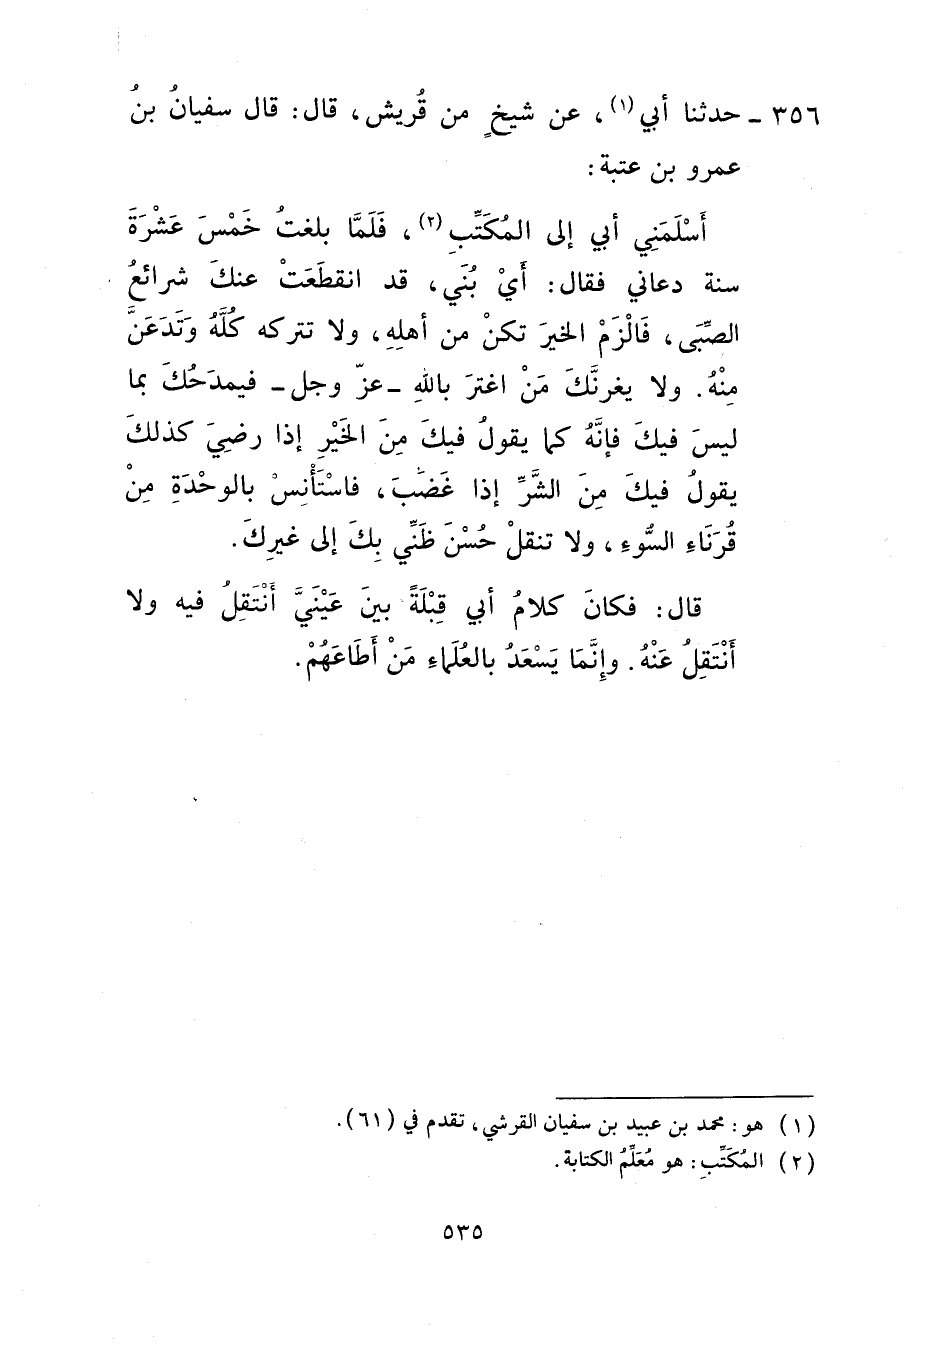 ٣٥٦ ـ حدثنا أبي(١)، عن شيخٍ من قُريش، قال: قال سفيانُ بنُ
عمرو بن عتبة:
أَسْلَمَنِي أبي إلى المُكَتِّبِ(٢)، فَلَمَّا بلغتُ خَمْسَ عَشْرَةَ
سنة دعاني فقال: أَيْ بُنَي، قد انقطَعَتْ عنكَ شرائعُ
الصِّبَى، فَالْزَمْ الخيرَ تكنْ من أهلِهِ، ولا تتركه كُلَّهُ وَتَدَعَنَّ
مِنْهُ. ولا يغرنَّكَ مَنْ اغترَ باللهِ ـ عزّ وجل ـ فيمدَحُكَ بما
ليسَ فيكَ فإنَّهُ كما يقولُ فيكَ مِنَ الخَيْرِ إذا رضِيَ كذلكَ
يقولُ فيكَ مِنَ الشَّرِّ إذا غَضَبَ، فاسْتَأْنِسْ بالوحْدَةِ مِنْ
قُرَنَاءِ السُّوءِ، ولا تنقلْ حُسْنَ ظَنِّي بِكَ إلى غيرِكَ.
قال: فكانَ كلامُ أبي قِبْلَةً بينَ عَيْنَيَّ أَنْتَقِلُ فيه ولا
أَنْتَقِلُ عَنْهُ. وإنَّمَا يَسْعَدُ بالعُلَماءِ مَنْ أَطَاعَهُمْ.
(١) هو: محمد بن عبيد بن سفيان القرشي، تقدم في (٦١).
(٢) المُكَتِّبِ: هو مُعَلِّمُ الكتابة.
٥٣٥